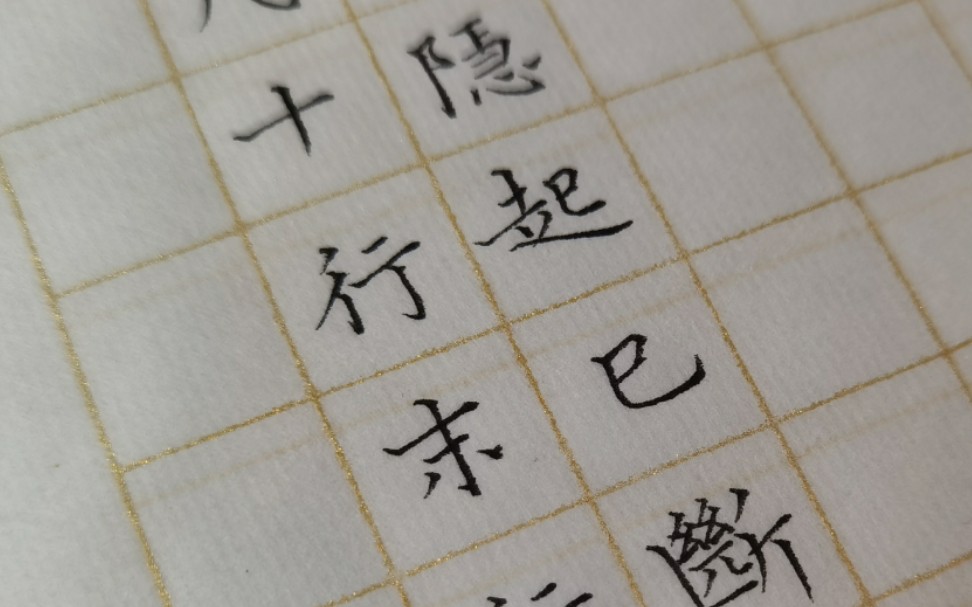 隱起已斷
十行末